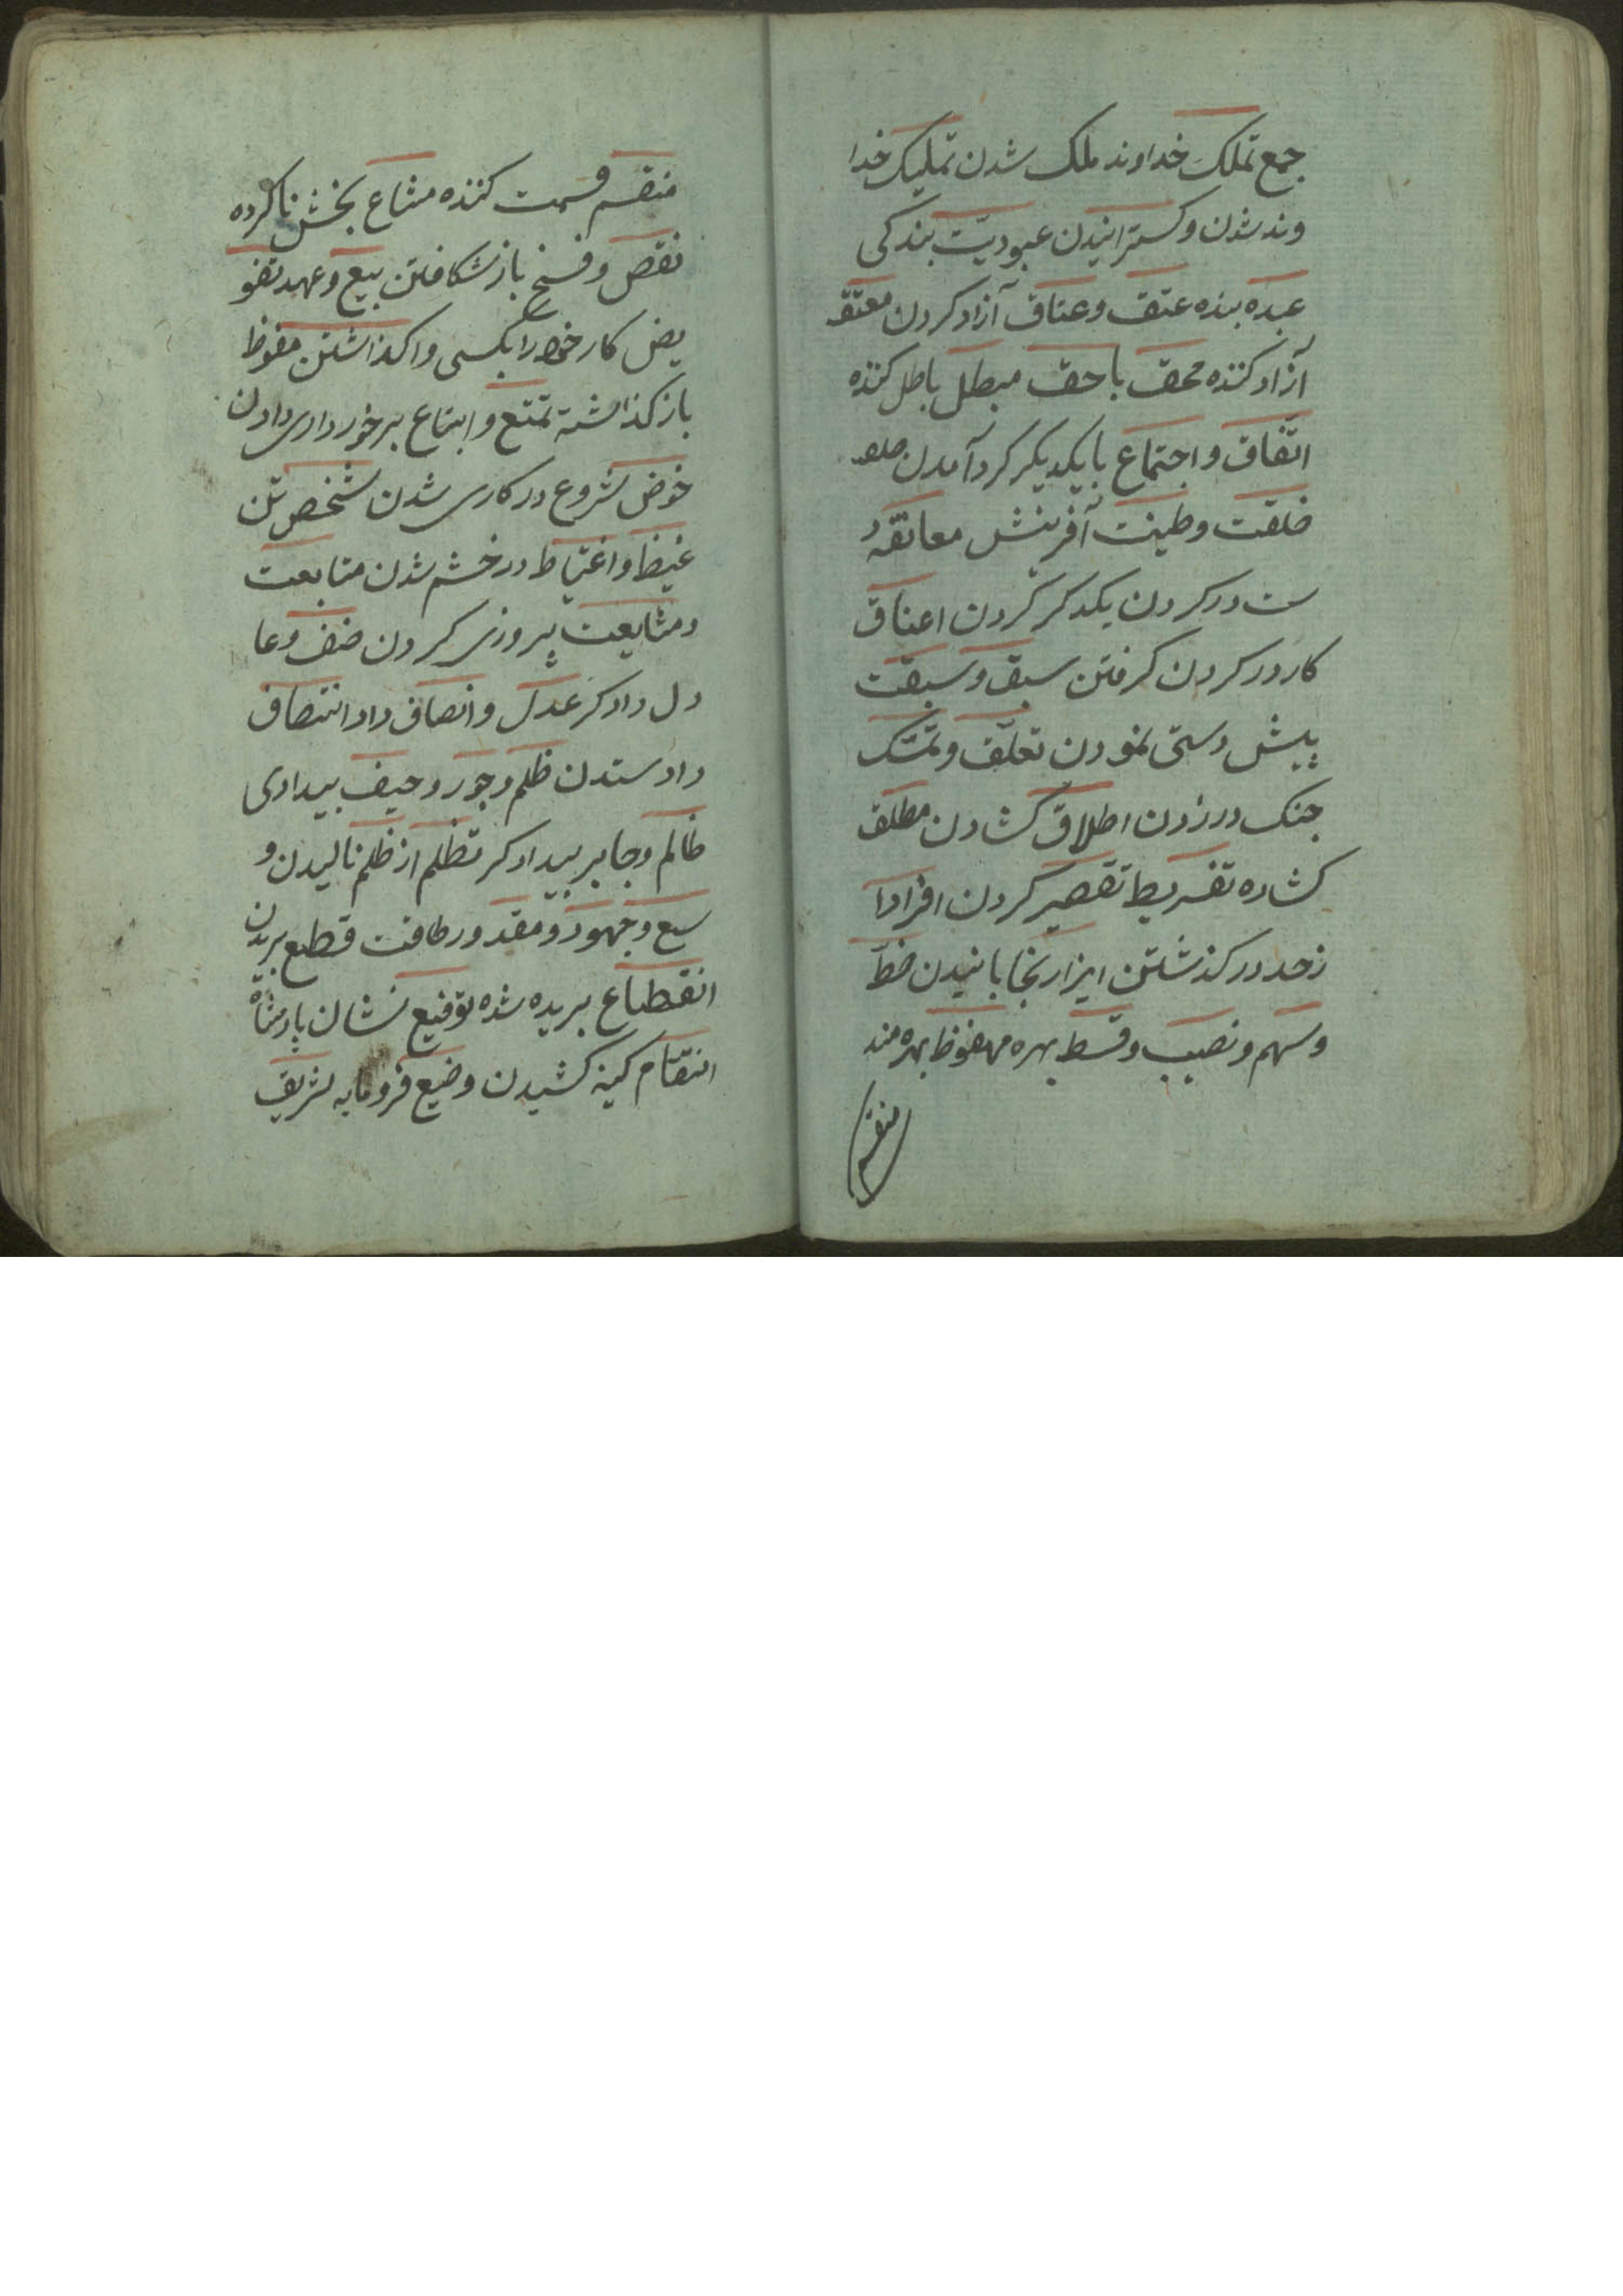 جمع تملک خداوند ملک شدن تملیک خدا
وند شدن و کسترانیدن عبودیّت بندکی
عبده بنده عتق و عتاق آزاد کردن معتق
آزاد کننده محق با حق مبطل باطل کننده
اتّفاق و اجتماع با یکدیکر کرد آمدن
خلقت و طینت آفرینش معانقه
ست در کردن یکدکر کردن اعناق
کار در کردن کرفتن سبق و سبقت
پیش دستی نمودن تعلّق و تمسّک
جنک در زدن اطلاق کشادن مطلق
کشاده تفریط تقصیر کردن افراد ا
زحد در کذشتن ایزا رنجا بانیدن حظّ
و سهم و نصیب و قسط بهره محفوظ بهره مند
منقسم
منقسم قسمت کننده مشاع بخش ناکرده
نقص و فسخ باز شکافتن بیع و عهد تفو
یض کار خود را بکسی واکذاشتن مفوظ
باز کذاشته تمتع و ابتاع برخورداری دادن
خوض شروع در کاری شدن شخص تن
غیظ و اغتیاط در خشم شدن متابعت
و مشایعت پیروزی کردن ضف و عا
دل دادکر عدل و انصاف داد انتصاف
داد ستدن ظلم و جور و حیف بیدادی
ظالم و جابر بیدادکر تظلم از ظلم نالیدن و
سع و جهود و مقدور طاقت قطع بریدن
انقطاع بریده شده توقیع نشان پادشاه
انتقام کینه کشیدن وضیع فرومایه شریف